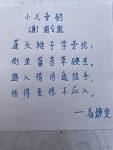 小儿垂钓
(唐)胡令能
蓬头稚子学垂纶,
侧坐莓苔草映身。
路人借问遥招手,
怕得鱼惊不应人。